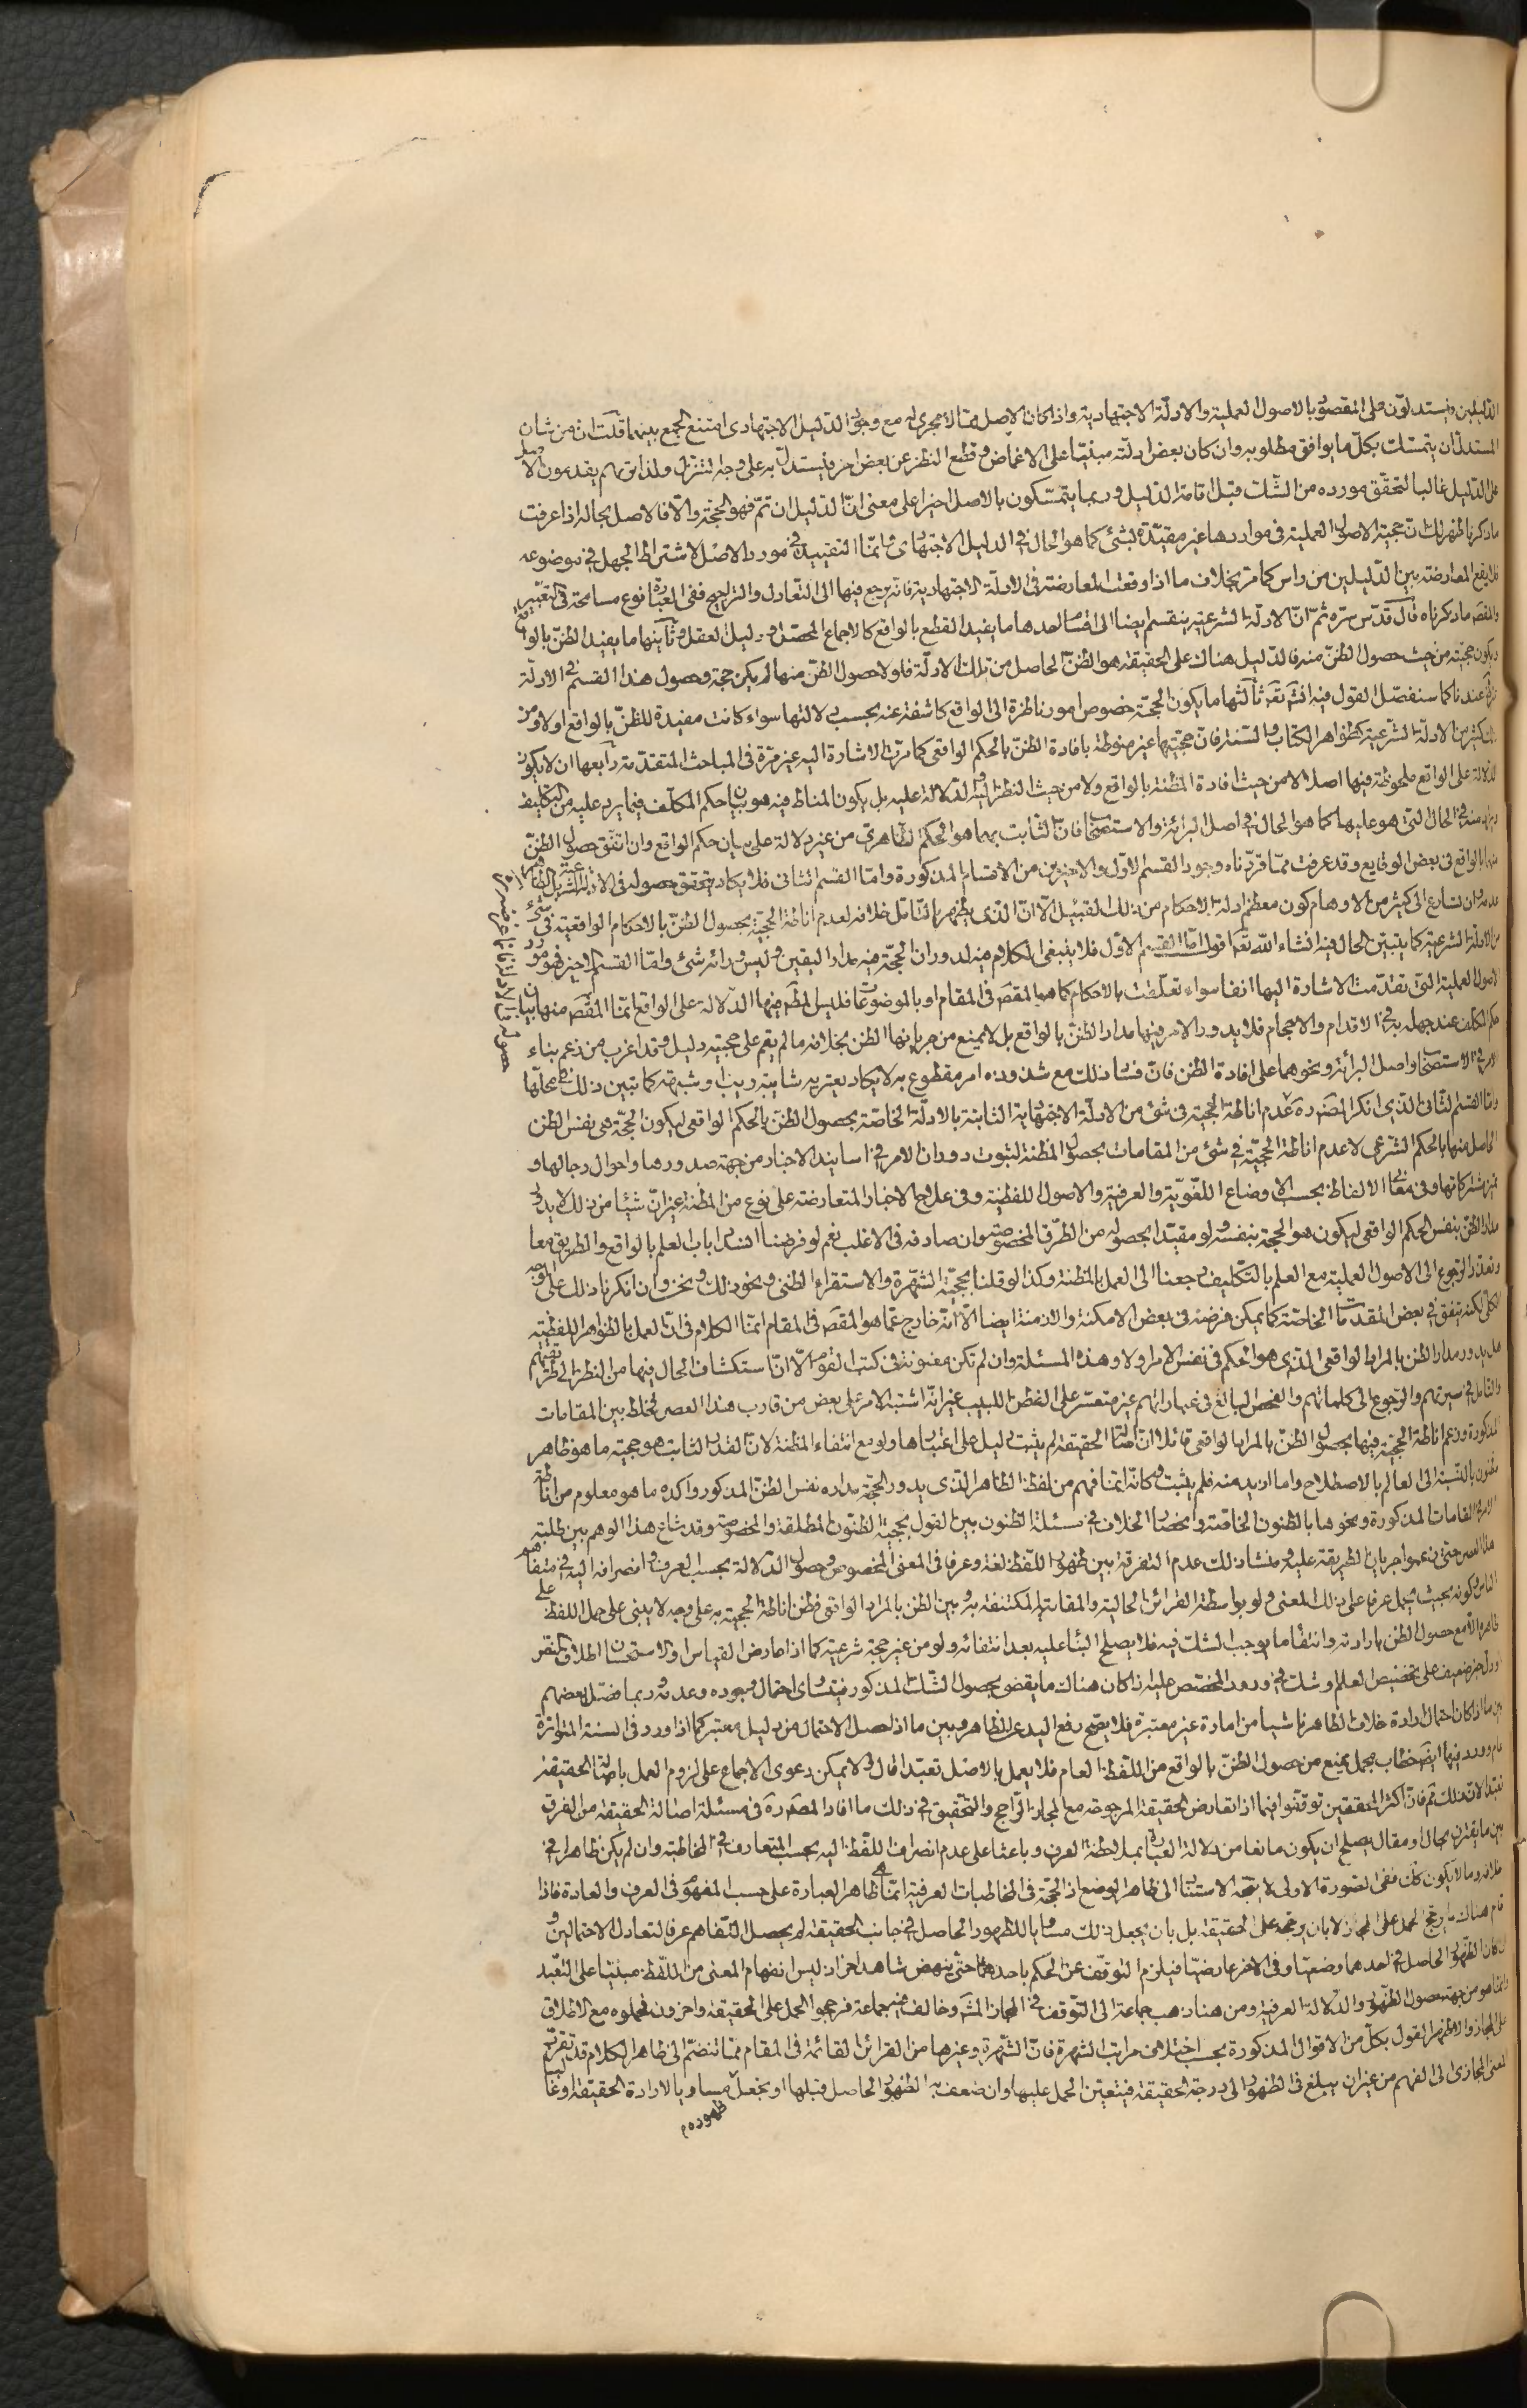 الدليلين ويستدلون على المقصود بالاصول العملية والادلة الاجتهادية واذا كان الاصل مما لا مجرى له مع وجود الدليل الاجتهادى امتنع الجمع بينهما قلت ان من شان
المستدل ان يتمسك بكل ما يوافق مطلوبه وان كان بعض ادلته مبنيا على الاغماض وقطع النظر عن بعض اخر فيستدل به على وجه التنزل ولذا تريهم يقدمون الاصل
على الدليل غالبا لتحقق مورده من الشك قبل اقامة الدليل وربما يتمسكون بالاصل اخيرا على معنى ان الدليل ان تم فهو الحجة والا فالاصل بحاله اذا عرفت
ما ذكرنا ظهر لك ان حجية الاصول العملية فى مواردها غير مقيدة بشئ كما هو الحال فى الدليل الاجتهادى وانما التقييد فى مورد الاصل لاشتراط الجهل فى موضوعه
فلا يقع المعارضة بين الدليلين من راس كما مر بخلاف ما اذا وقعت المعارضة فى الادلة الاجتهادية فانه يرجع فيها الى التعادل والتراجيح ففى العبارة نوع مسامحة فى التعبير
والمقصود ما ذكرناه قال قدس سره ثم ان الادلة الشرعية ينقسم ايضا الى اقسام احدها ما يفيد القطع بالواقع كالاجماع المحصل ودليل العقل وثانيها ما يفيد الظن بالواقع
ويكون حجيته من حيث حصول الظن منه فالدليل هناك على الحقيقة هو الظن الحاصل من تلك الادلة فلولا حصول الظن منها لم يكن حجة وحصول هذا القسم فى الادلة
عندنا كما سنفصل القول فيه انش تع ثالثها ما يكون الحجة خصوص امور ناظرة الى الواقع كاشفة عنه بحسب دلالتها سواء كانت مفيدة للظن بالواقع اولا ومن
ذلك كثير من الادلة الشرعية كظواهر الكتاب والسنة فان حجيتها غير منوطة بافادة الظن بالحكم الواقعى كما مرت الاشارة اليه غير مرة فى المباحث المتقدمة رابعها ان لا يكون
الدلالة على الواقع ملحوظة فيها اصلا لا من حيث افادة المظنة بالواقع ولا من حيث النظر اليه والدلالة عليه بل يكون المناط فيه هو بيان حكم المكلف فيما يرد عليه من التكليف
ويراد منه فى الحال التى هو عليها كما هو الحال فى اصل البرائة والاستصحاب فان الثابت بهما هو الحكم الظاهرى من غير دلالة على بيان حكم الواقع وان اتفق حصول الظن
منها بالواقع فى بعض الوقايع وقد عرفت مما قررناه وجود القسم الاول والاخيرين من الاقسام المذكورة واما القسم الثانى فلا يكاد يتحقق حصوله فى الادلة الشرعية
وان تسارع الى كثير من الاوهام كون معظم ادلة الاحكام من ذلك القبيل الا ان الذى يظهر بالتامل خلافه لعدم اناطة الحجية بحصول الظن بالاحكام الواقعية فى شئ
من الادلة الشرعية كما يتبين الحال فيه انشاء الله تع اقول اما القسم الاول فلا ينبغى الكلام فيه لدوران الحجة فيه مدار اليقين وليس ورائه شئ واما القسم الاخير فهو مورد
الاصول العملية التى تقدمت الاشارة اليها انفا سواء تعلقت بالاحكام كما هو المقص فى المقام او بالموضوعات فليس المنظور فيها الدلالة على الواقع انما المقص منها بيان
حكم المكلف عند جهله به فى الاقدام والاحجام فلا يدور الامر فيها مدار الظن بالواقع بل لا يمنع من جريانها الظن بخلافه ما لم يقم على حجيته دليل وقد اغرب من زعم بناء
الامر فى الاستصحاب واصل البرائة ونحوهما على افادة الظن فان فساد ذلك مع شذوذه امر مقطوع به لا يكاد يعتريه شائبة ريب وشبهة كما تبين ذلك فى محلها
واما القسم الثانى الذى انكر المص ره عدم اناطة الحجية فى شئ من الادلة الاجتهادية الثابتة بالادلة الخاصة بحصول الظن بالحكم الواقعى ليكون الحجة هى نفس الظن
الحاصل منها بالحكم الشرعى لا عدم اناطة الحجية فى شئ من المقامات بحصول المظنة لثبوت دوران الامر فى اسانيد الاخبار من جهة صدورها واحوال رجالها و
تميز مشتركاتها وفى معانى الالفاظ بحسب الاوضاع اللغوية والعرفية والاصول اللفظية وفى علاج الاخبار المتعارضة على نوع من المظنة غير ان شيئا من ذلك لا يدير
مدار الظن بنفس الحكم الواقعى ليكون هو الحجة بنفسه ولو مقيدا بحصوله من الطرق المخصوصة وان صادفه فى الاغلب نعم لو فرضنا انسداد باب العلم بالواقع والطريق معا
وتعذر الرجوع الى الاصول العملية مع العلم بالتكليف رجعنا الى العمل بالمظنة وكذا لو قلنا بحجية الشهرة والاستقراء الظنى ونحو ذلك ونحن وان انكرنا ذلك على الوجه
الكلى لكنه يتفق فى بعض المقدمات الخاصة كما يمكن فرضه فى بعض الامكنة والازمنة ايضا الا انه خارج عما هو المقص فى المقام انما الكلام فى ان العمل بالظواهر اللفظية
هل يدور مدار الظن بالمراد الواقعى الذى هو الحكم فى نفس الامر اولا وهذه المسئلة وان لم تكن معنونة فى كتب القوم الا ان استكشاف الحال فيها من النظر الى طريقتهم
والتامل فى سيرتهم والرجوع الى كلماتهم والفحص البالغ فى عباراتهم غير متعسر على الفطن اللبيب غير انه اشتبه الامر على بعض من قارب هذا العصر فخلط بين المقامات
المذكورة وزعم اناطة الحجية فيها بحصول الظن بالمراد الواقعى قائلا ان اصالة الحقيقة لم يثبت دليل على اعتبارها ولو مع انتفاء المظنة لان القدر الثابت هو حجية ما هو ظاهر
مظنون بالنسبة الى العالم بالاصطلاح واما ازيد منه فلم يثبت وكانه انما فهم من لفظ الظاهر الذى يدور الحجة مداره نفس الظن المذكور واكده ما هو معلوم من اناطة
الامر فى المقامات المذكورة ونحوها بالظنون الخاصة وانحصار الخلاف فى مسئلة الظنون بين القول بحجية الظنون المطلقة والمخصوصة وقد شاع هذا الوهم بين طلبة
هذا العصر حتى زعموا جريان الطريقة عليه ومنشا ذلك عدم التفرقة بين ظهور اللفظ لغة وعرفا فى المعنى المخصوص وحصول الدلالة بحسب العرف وانصرافه اليه فى متفاهم
الناس وكونه بحيث يحمل عرفا على ذلك المعنى ولو بواسطة القرائن الحالية والمقالية المكتنفة به وبين الظن بالمراد الواقعى فظن اناطة الحجية به على وجه لا يبنى على حمل اللفظ على
ظاهره الا مع حصول الظن بارادته وانتفاء ما يوجب الشك فيه فلا يصلح البناء عليه بعد انتفائه ولو من غير حجة شرعية كما اذا عارض القياس او الاستحسان اطلاق النص
او دل خبر ضعيف على تخصيص العلم او شك فى ورود المخصص عليه اذا كان هناك ما يقضى بحصول الشك المذكور فيتساوى احتمال وجوده وعدمه وربما فصل بعضهم
بين ما اذا كان احتمال ارادة خلاف الظاهر ناشيا من امارة غير معتبرة فلا يصح رفع اليد عن الظاهر وبين ما اذا حصل الاحتمال من دليل معتبر كما اذا ورد فى السنة المتواترة
عام وورد فيها ايض خطاب مجمل يمنع من حصول الظن بالواقع من اللفظ العام فلا يعمل بالاصل تعبدا قال ولا يمكن دعوى الاجماع على لزوم العمل باصالة الحقيقة
تعبدا فان اكثر المحققين توقفوا فيما اذا تعارض الحقيقة المرجوحة مع المجاز الراجح والتحقيق فى ذلك ما افاد المص ره فى مسئلة اصالة الحقيقة من الفرق
بين ما يقترن بحال او مقال يصلح ان يكون مانعا من دلالة العبارة بملاحظة العرف وباعثا على عدم انصراف اللفظ اليه بحسب المتعارف فى المخاطبة وان لم يكن ظاهرا فى
خلافه وما لا يكون كك ففى الصورة الاولى لا يتجه الاستناد الى ظاهر الوضع اذ الحجة فى المخاطبات العرفية انما هى ظاهر العبارة على حسب المفهوم فى العرف والعادة فاذا
قام هناك ما يرجح الحمل على المجاز لا بان يرجحه على الحقيقة بل بان يجعل ذلك مساويا للظهور الحاصل فى جانب الحقيقة لم يحصل التفاهم عرفا لتعادل الاحتمالين و
ان كان الظهور الحاصل فى احدهما وضعيا وفى الاخر عارضيا فيلزم التوقف عن الحكم باحدهما حتى ينهض شاهد اخر اذ ليس انفهام المعنى من اللفظ مبنيا على التعبد
وانما هو من جهة حصول الظهور والدلالة العرفية ومن هنا ذهب جماعة الى التوقف فى المجاز المشهور وخالف فيه جماعة فرجحوا الحمل على الحقيقة واخرون فحملوه مع الاطلاق
على المجاز والاظهر القول بكل من الاقوال المذكورة بحسب اختلاف مراتب الشهرة فان الشهرة وغيرها من القرائن القائمة فى المقام مما تنضم الى ظاهر الكلام قد تقرب
المعنى المجازى الى الفهم من غير ان يبلغ فى الظهور الى درجة الحقيقة فيتعين الحمل عليها وان ضعف به الظهور الحاصل قبلها او يجعل مساويا لارادة الحقيقة او غا
ظهوره